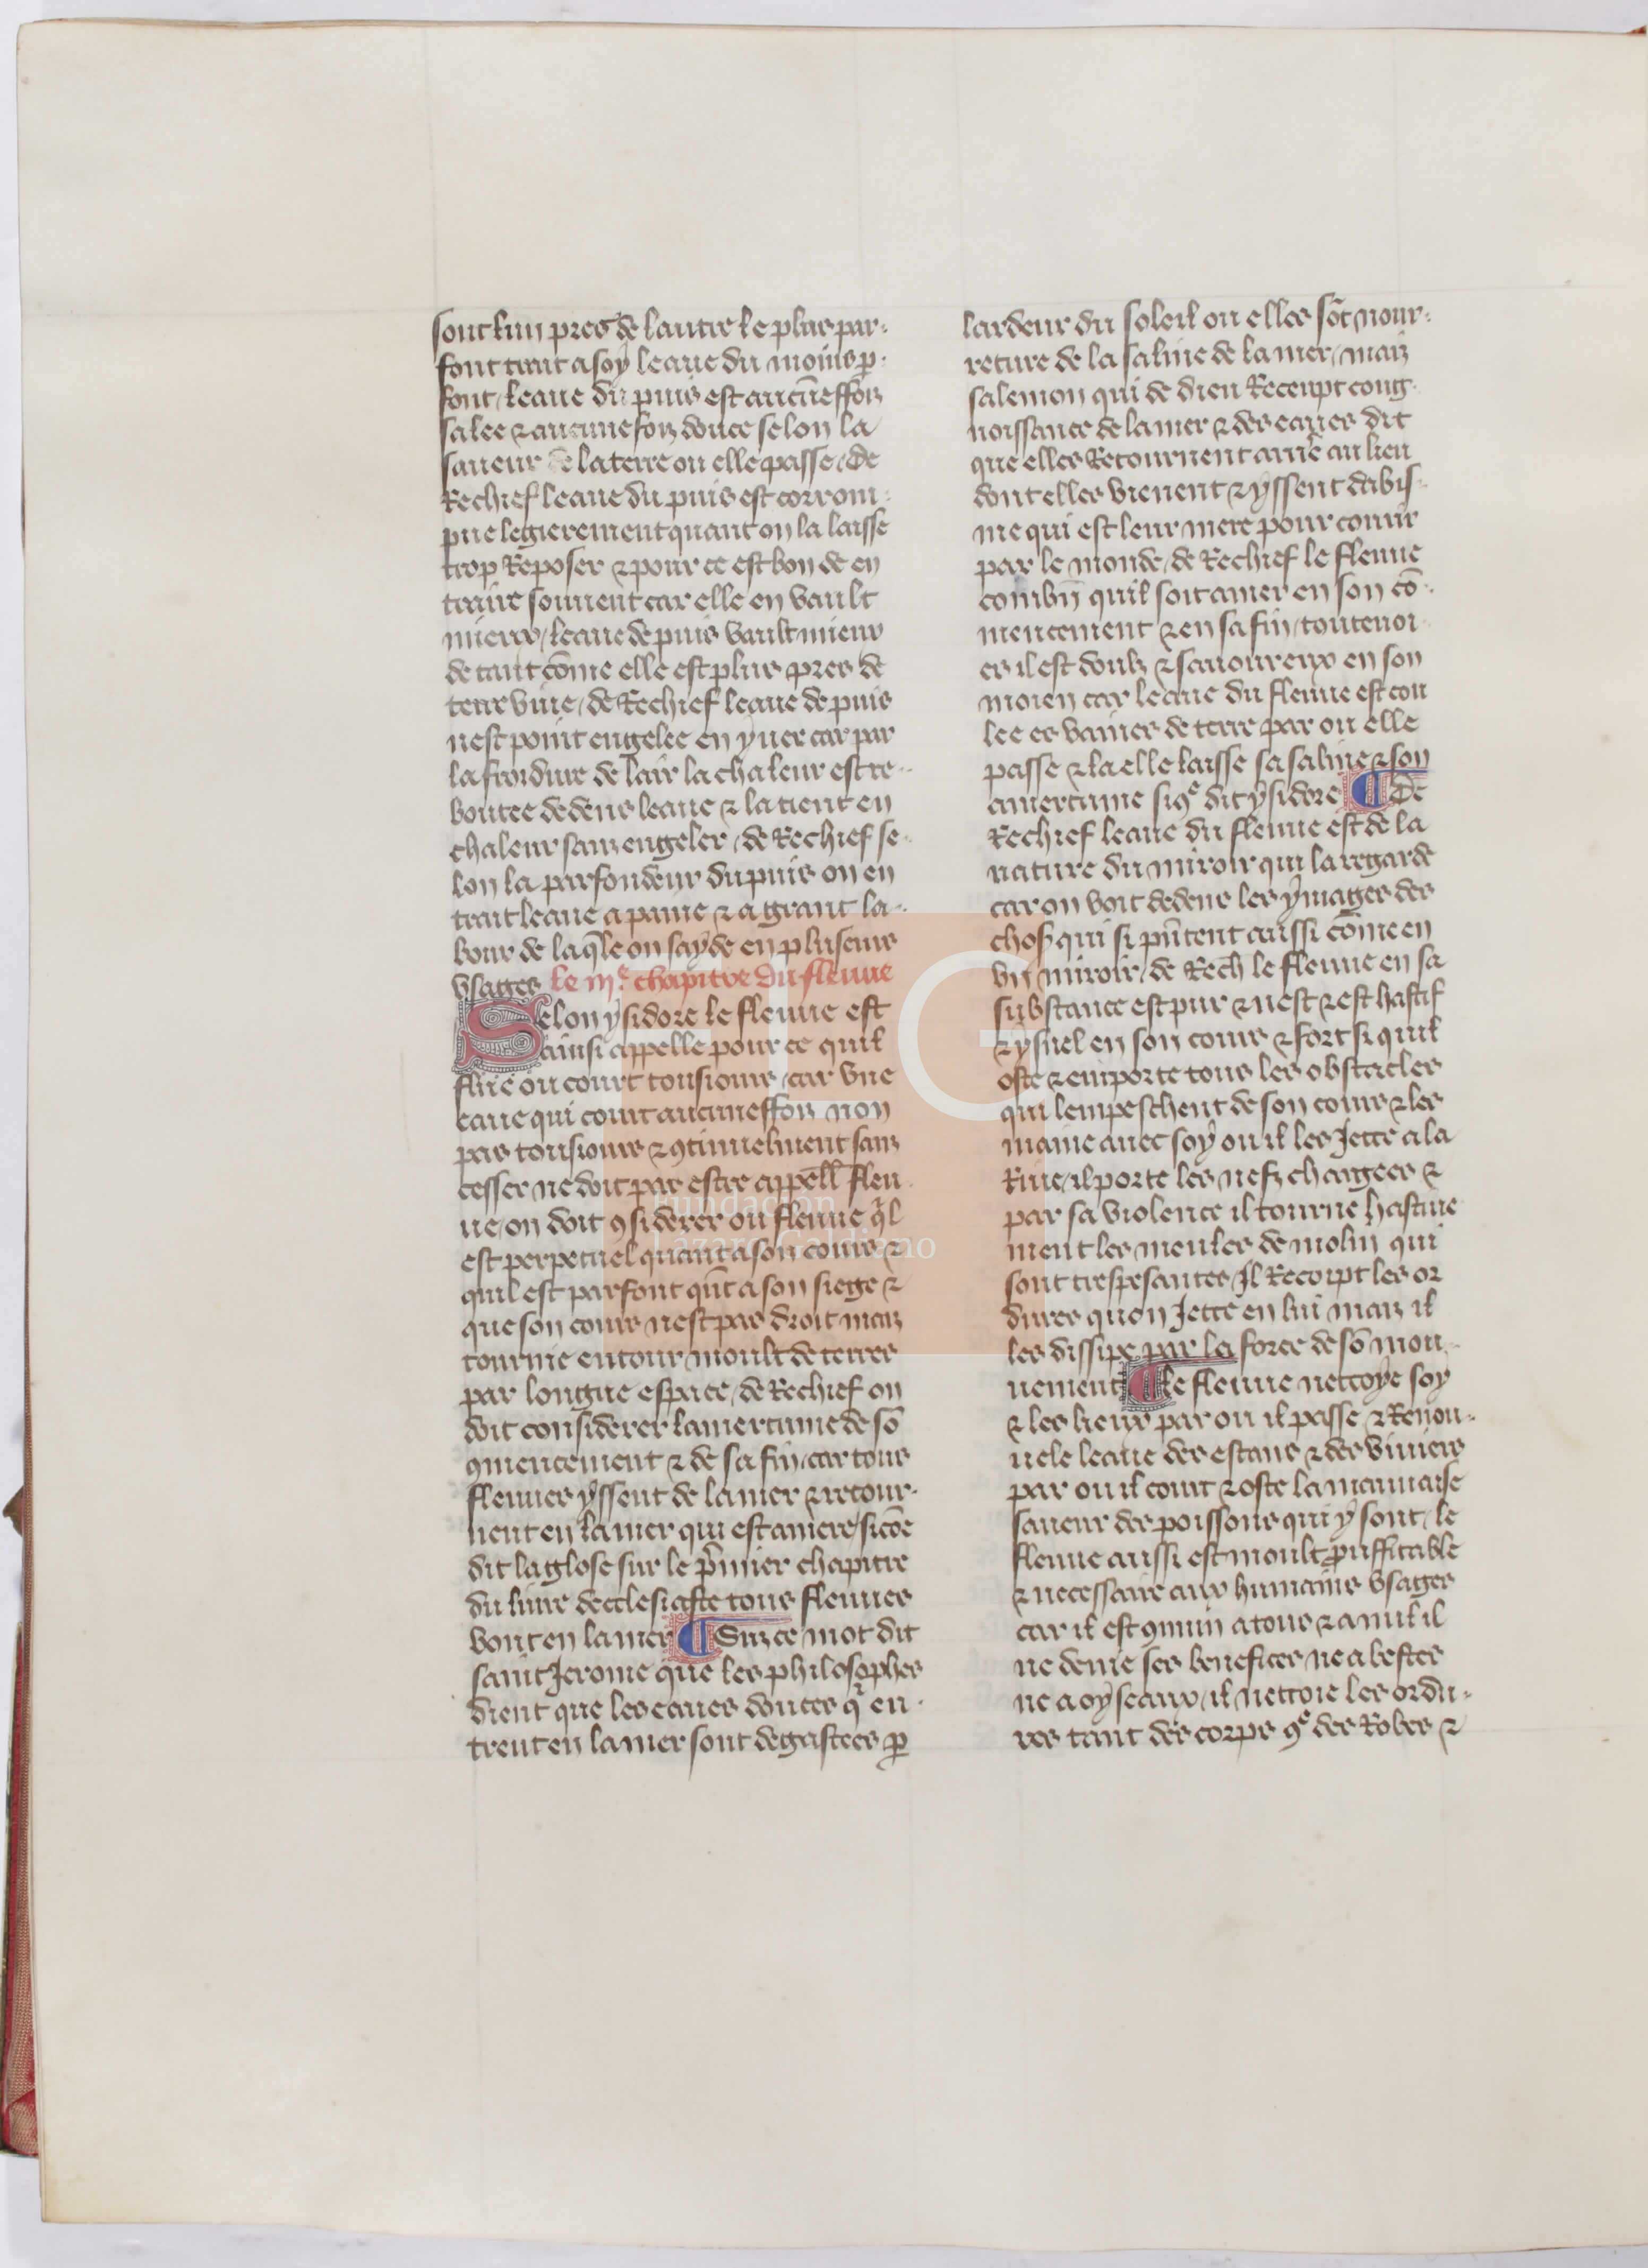 sont lun pres de lautre le plus par-
font trait a soy leaue du moins p̱-
font / leaue du puis est aucūeffoiz
salee ⁊ aucunefoiz douce selon la
saueur de la terre ou elle passe / De
Rechief leaue du puis est corrom-
pue legierement quant on la laisse
trop Reposer ⁊ pour ce est bon de en
traire souuent car elle en vault
mieux / leaue de puis vault mieux
de tant cōme elle est plus pres de
terre viue / de Rechief leaue de puis
nest point engelee en yuer car par
la froidure de lair la chaleur est re-
boutee dedens leaue ⁊ la tient en
chaleur sanz engeler / de Rechief se-
lon la parfondeur du puis on en
trait leaue a paine ⁊ a grant la-
bour de laq̄le on sayde en pluseurs
vsages le iiiᵉ chapitre du fleuue
Selon ysidore le fleuue est
ainsi appelle pour ce quil
flue ou court tousiours / car vne
eaue qui court aucuneffoiz non
pas tousiours ⁊ ꝯtinuelment sanz
cesser ne doit pas estre appell̄ fleu
ue / on doit ꝯsiderer ou fleuue qⁱl
est perpetuel quant a son cours ⁊
quil est parfont qūt a son siege ⁊
que son cours nest pas droit maiz
tournie entour moult de terres
par longue espace / de Rechief on
doit considerer lamertume de sō
ꝯmencement ⁊ de sa fin / car tous
fleuues yssent de la mer ⁊ retour-
nent en la mer qui est amere / sicōe
dit la glose sur le p̄mier chapitre
du liure decclesiaste tous fleuues
vont en la mer ¶ Sur ce mot dit
saint Jerome que les philosophes
dient que les eaues douces qⁱ en-
trent en la mer sont degastees ꝑ
lardeur du soleil ou elles sōt nour-
reture de la saline de la mer / maiz
salemon qui de dieu Receupt cong-
noissance de la mer ⁊ des eaues dit
que elles Retournent arrie au lieu
dont elles vienent ⁊ yssent dabis-
me qui est leur mere pour courir
par le monde / de Rechief le fleuue
combn̄ quil soit amer en son cō-
mencement ⁊ en sa fin / toutevoi-
es il est doulz ⁊ sauoureux en son
moien car leaue du fleuue est cou
lee es vaines de terre par ou elle
passe ⁊ la elle laisse sa saline ⁊ son
amertume sicꝯᵉ dit ysidore ¶ De
Rechief leaue du fleuue est de la
nature du miroir qui la regarde
car on voit dedens les ymages des
choses qui si pn̄tent aussi cōme en
vn miroir / de Rech̄ le fleuue en sa
substance est pur ⁊ nest ⁊ est hastif
⁊ ysnel en son cours ⁊ fort si quil
oste ⁊ emporte tous les obstacles
qui lempeschent de son cours ⁊ les
maine auec soy ou il les Jette a la
Riue / il porte les nefz chargees ⁊
par sa violence il tourne hastiue
ment les meules de molin qui
sont trespesantes / Il Recoipt les or
dures quon Jette en lui maiz il
les dissipe par la force de sō mou-
uement ¶ Le fleuue nettoye soy
⁊ les lieux par ou il passe ⁊ Renou-
uele leaue des estans ⁊ des viuiers
par ou il court ⁊ oste la mauuaise
saueur des poissons qui y sont / le
fleuue aussi est moult ꝓuffitable
⁊ necessaire aux humains vsages
car il est ꝯmun a tous ⁊ a nul il
ne denie ses benefices ne a bestes
ne a oyseaux / il nettoie les ordu-
res tant des corps ꝯᵉ des Robes ⁊
Fundación
Lázaro Galdiano